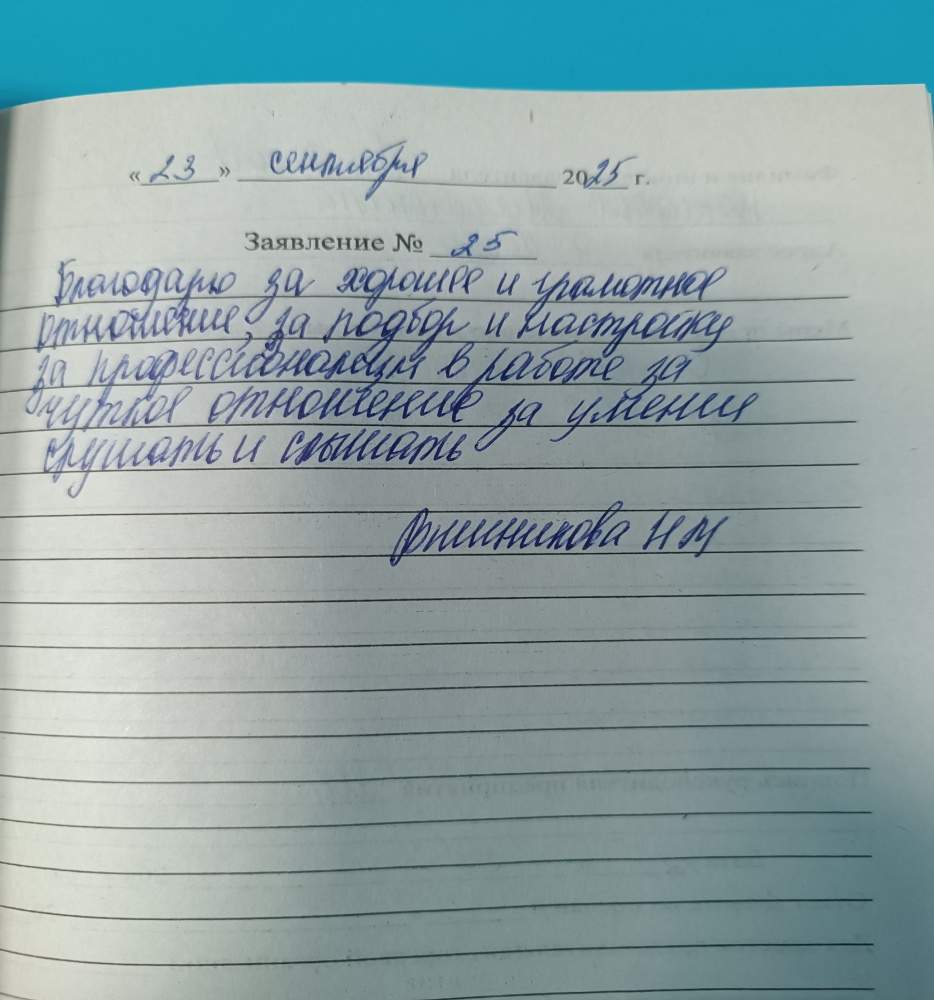 « 23 » сентября 2025 г.
Заявление № 25
Благодарю за хорошее и грамотное
отношение, за подбор и настройку
за профессионализм в работе за
чуткое отношение за умение
слушать и слышать
Н М